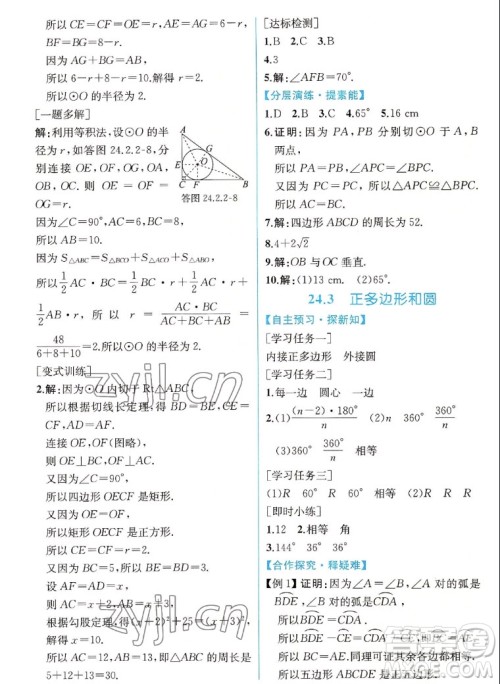 所以 CE=CF=OE=OF=r.
所以 BF=BG=8-r.
因为 AG+BG=AB,
所以 6-r+8-r=10.解得 r=2.
所以⊙O 的半径为 2.
[一题多解]
解:利用等积法,设⊙O 的半
径为 r,如答图 24.2.2-8,分
别连接 OE,OF,OG,OA,
OB,OC.则 OE=OF=
OG=r.
因为∠C=90°,AC=6,BC=8,
所以 AB=10.
A
G
E
O
C
F
B
答图 24.2.2-8
因为 S△ABC=S△BCO+S△ACO+S△ABO,
所以 1/2 AC·BC=1/2 BC·r+1/2 AC·r+
1/2 AB·r,所以 r=AC·BC/(AC+BC+AB)=
48/(6+8+10)=2.所以⊙O 的半径为 2.
[变式训练]
2.解:因为⊙O 内切于 Rt△ABC,
所以根据切线长定理,得
AD=AF,BD=BE,CE=
CF.
连接 OE,OF(图略),
则 OE⊥BC,OF⊥AC.
又因为∠C=90°,
所以四边形 OECF 是矩形.
又因为 OE=OF,
所以矩形 OECF 是正方形.
设 OE=x,
则 AC=x+2,BC=x+3.
根据勾股定理,得(x+2)²+
(x+3)²=25,
解得 x=1.
则△ABC 的周长是
5+12+13=30.
[达标检测]
1.B 2.C 3.B
4.3
5.解:∠AFB=70°.
【分层演练·提素能】
1.D 2.D 3.C 4.65° 5.16 cm
6.证明:因为 PA,PB 分别切⊙O 于 A,B
两点,
所以 PA=PB,∠APC=∠BPC.
又因为 PC=PC,
所以△APC≌△BPC.
所以∠PAC=∠PBC.
7.解:四边形 ABCD 的周长为 52.
8.4+2√2
9.解:OB 与 OC 垂直.
10.解:(1)13 cm. (2)65°.
24.3 正多边形和圆
【自主预习·探新知】
[学习任务一]
内接正多边形 外接圆
[学习任务二]
1.每一边 圆心 一边
2.(1)(n-2)·180°/n (2)n 360° 360°/n
(3)360° 360°/n 相等
[学习任务三]
(1)R 60° R 60° (2)60° R
[即时小练]
1.12 2.相等 角
3.144° 36° 36°
【合作探究·释疑难】
[例 1]证明:因为∠A=∠B,∠A 对的弧是
BDE,∠B 对的弧是 CDA,
所以 BDE=CDA.
所以 BDE-CDE=CDA-CDE.
即 BC=AE.
同理可证其余各边都相等,
所以五边形 ABCDE 是正五边形.
zyjl.cn
zyjl.cn